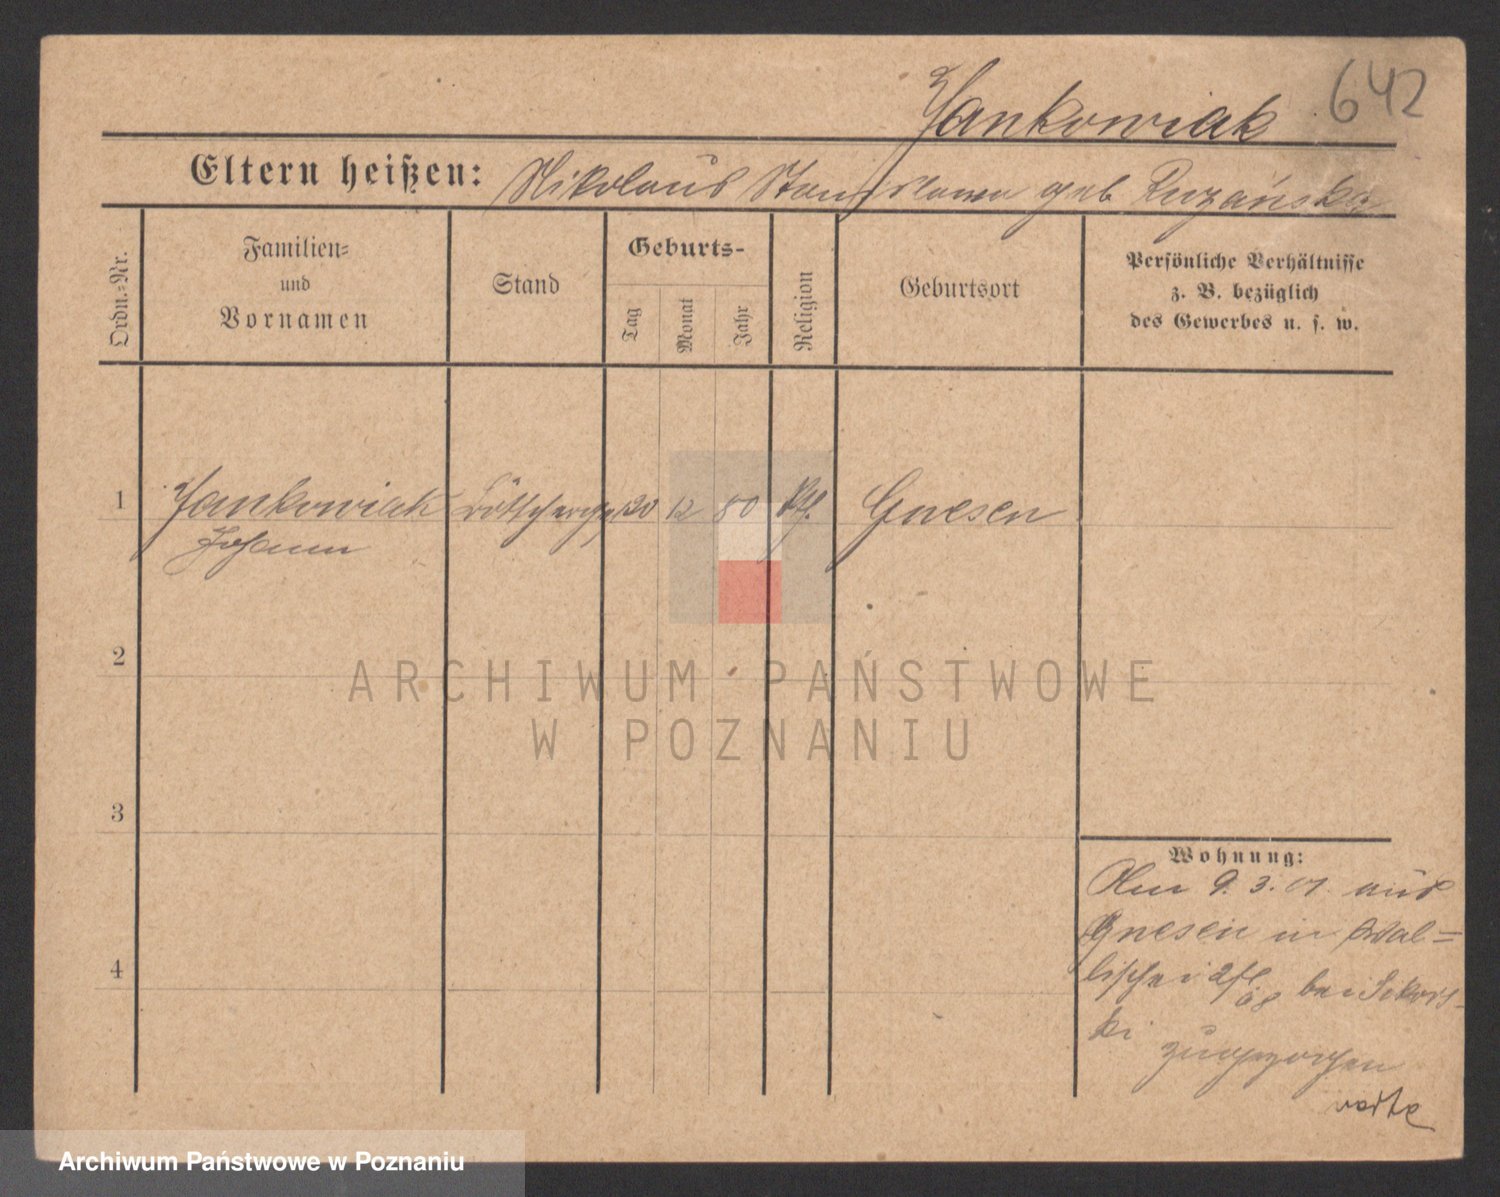 Jankowiak 642
Eltern heißen: Nikolaus Stanislawa geb Ruzańska
Ordn.-Nr.
Familien-
und
Vornamen
Stand
Geburts-
Tag
Monat
Jahr
Religion
Geburtsort
Persönliche Verhältnisse
z. B. bezüglich
des Gewerbes u. s. w.
1 Jankowiak 20 12 80 Gnesen
Johann
2
3
4
Wohnung:
Am 9. 3. 01. aus
Gnesen in Wal=
lischei bei Sikors-
ki
zugezogen
ARCHIWUM PAŃSTWOWE
W POZNANIU
Archiwum Państwowe w Poznaniu